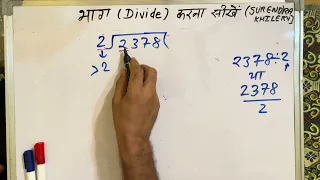 भाग (Divide) करना सीखें (SURENDRA KHILERY)
2√2378(
>2
2378÷2
या
2378
2